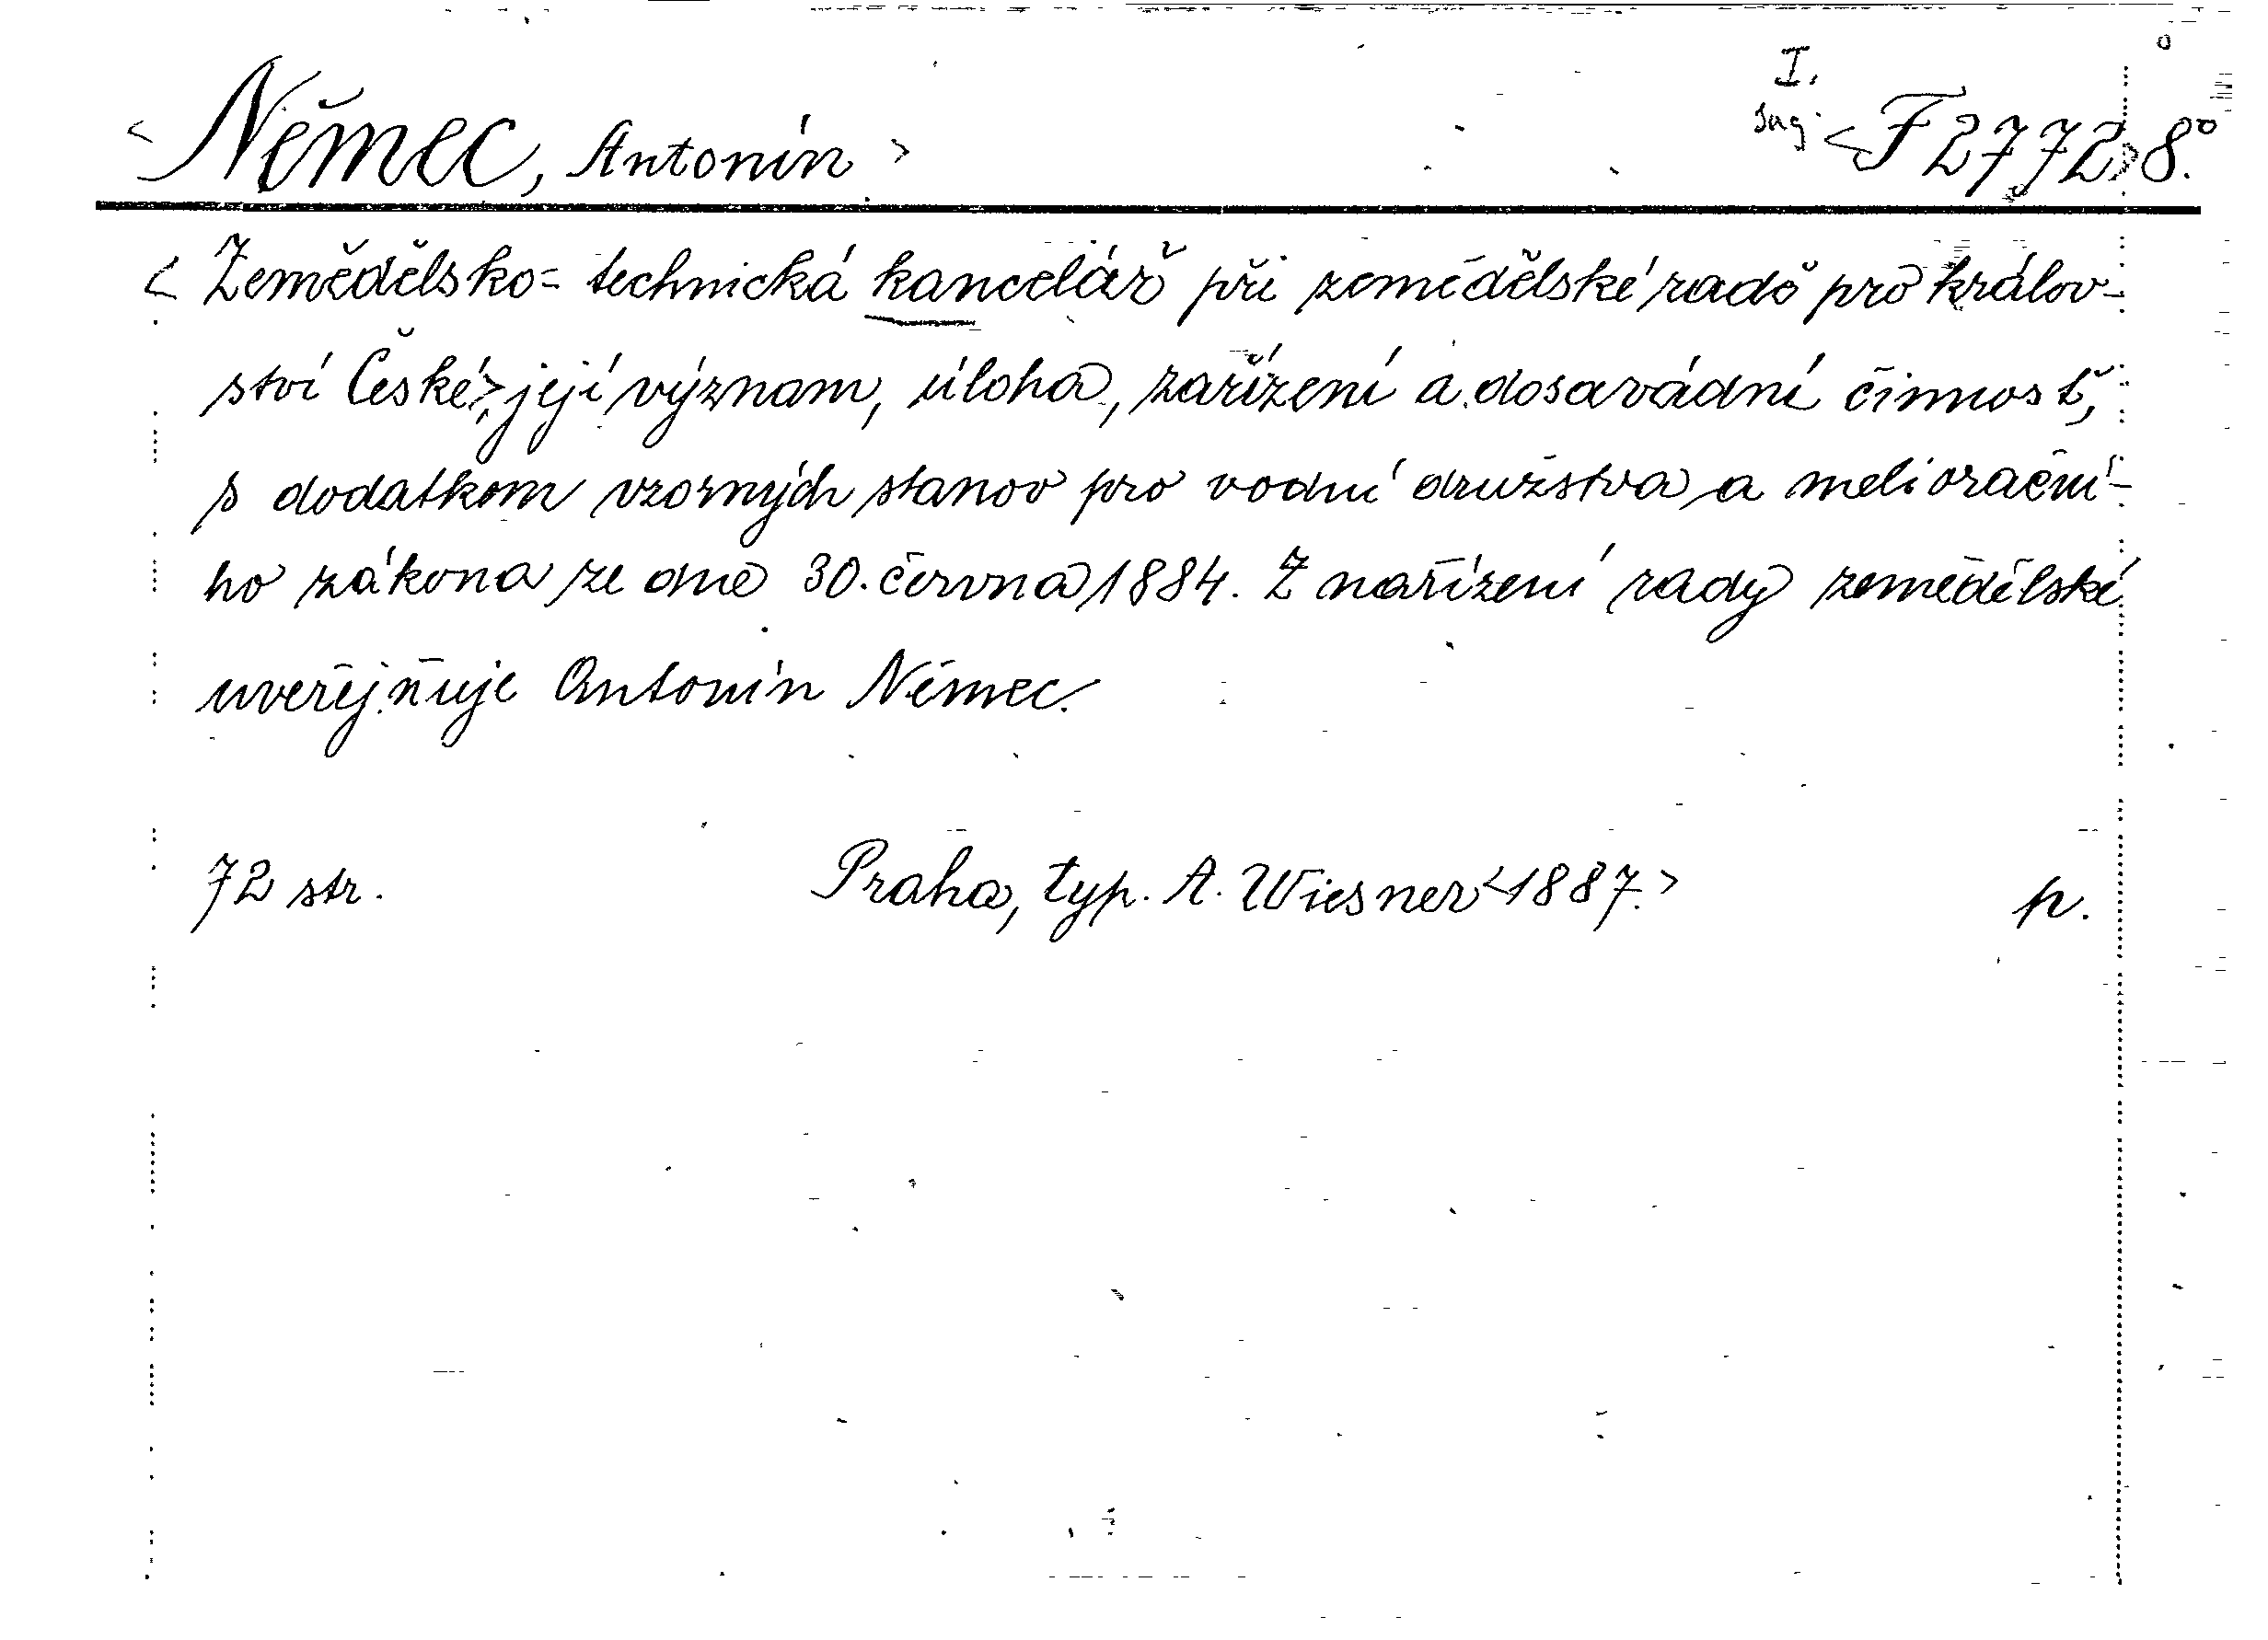 I.
<Němec, Antonín> sug. <F 2772> 8.°
<Zemědělsko-technická kancelář při zemědělské radě pro králov-
ství České>, její význam, úloha, zařízení a dosavádní činnosť,
s dodatkem vzorných stanov pro vodní družstva a meliorační-
ho zákona ze dne 30. června 1884. Z nařízení rady zemědělské
uveřejňuje Antonín Němec.
72 str. Praha, typ. A. Wiesner <1887.> p.